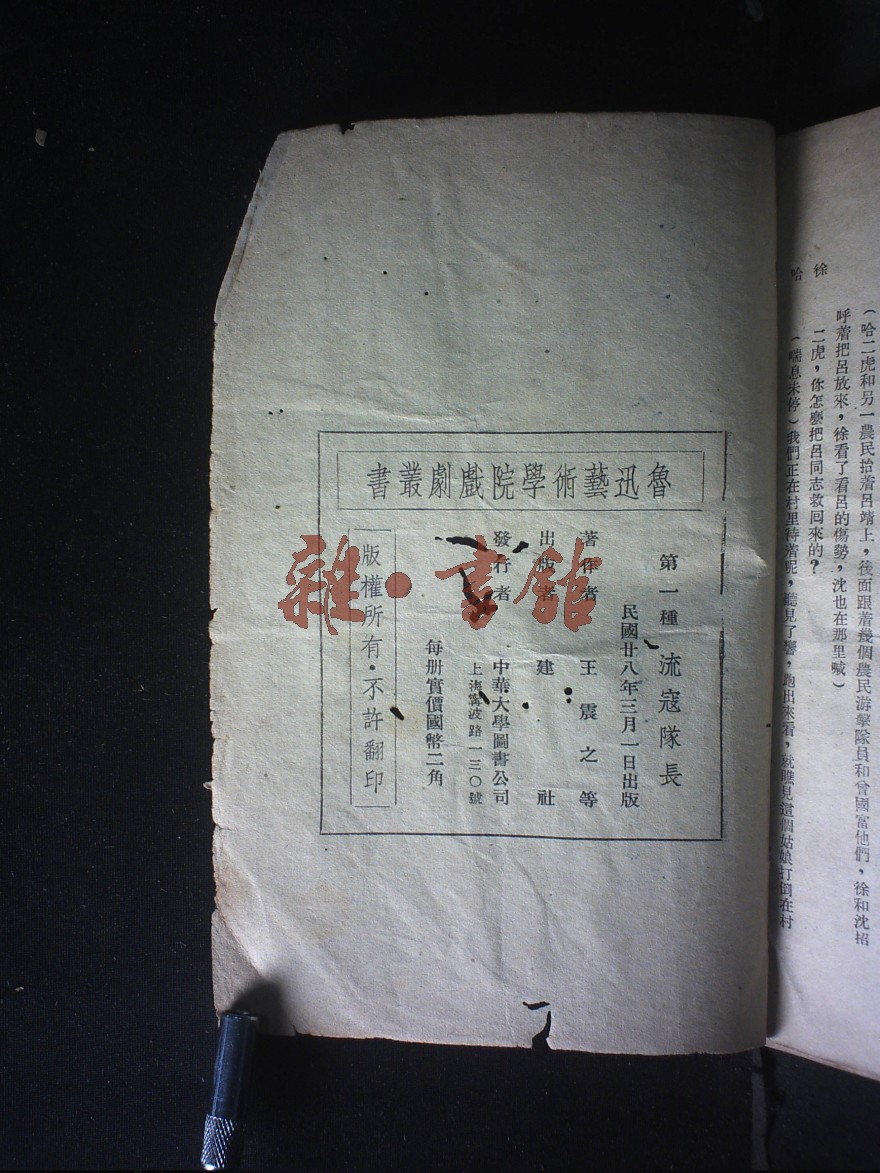 徐
（哈二虎和另一農民抬着呂靖上，後面跟着幾個農民游擊隊員和曾國富他們，徐和沈招
呼着把呂放來，徐看了看呂的傷勢，沈也在那里喊）
二虎，你怎麽把呂同志救回來的？
哈
（喘息未停）我們正在村里待着呢，聽見了響，跑出來看，就瞧見這個姑娘打倒在村
魯迅藝術學院戲劇叢書
第一種 流寇隊長
民國廿八年三月一日出版
著作者 王震之等
出版者 建社
發行者 中華大學圖書公司
上海寧波路一三〇號
每册實價國幣二角
版權所有·不許翻印
雜·書館